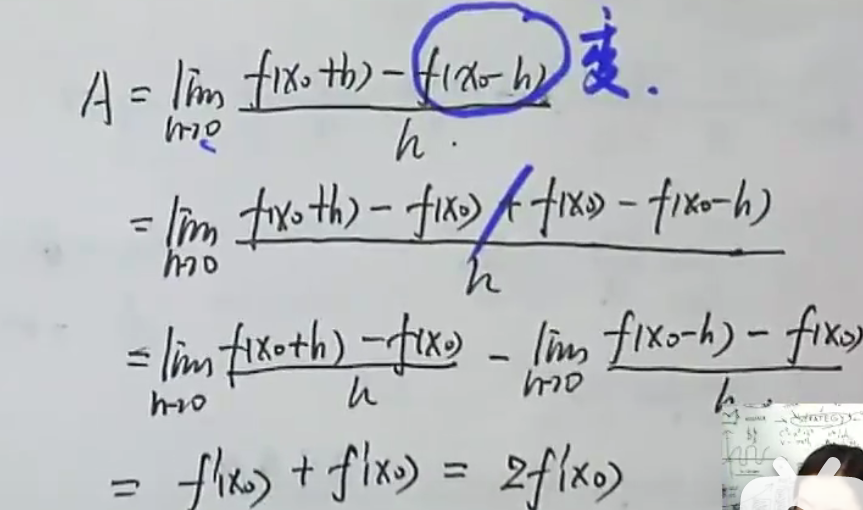 A = lim h→0 f(x₀+h) - f(x₀-h) / h 变.
= lim h→0 f(x₀+h) - f(x₀) + f(x₀) - f(x₀-h) / h
= lim h→0 f(x₀+h) - f(x₀) / h - lim h→0 f(x₀-h) - f(x₀) / h
= f'(x₀) + f'(x₀) = 2f'(x₀)